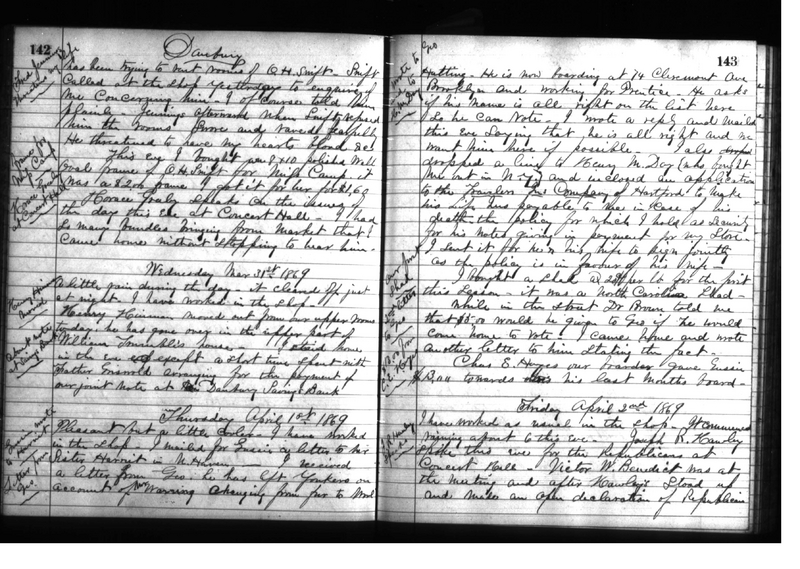 142
Danbury
has been trying to rent rooms of O.H. Swift - Swift
called at the Shop yesterday to enquire of
me concerning him - I of course told him
plainly - Jennings afterward when Swift refused
him the rooms
He threatened to have my hearts blood &c
This eve I bought an 8x10 polished Wall
Oval frame of O H Swift for Miss Camp. it
was a 2.00 frame I got it for her for 1.60
Horace Greely Speaks on the issues of
the day this Eve at Concert Hall - I had
so many bundles bringing from market that I
came home without stopping to hear him -
Wednesday Mar 31st 1869
A little rain during the day - it cleared off just
at night. I have worked in the Shop -
Henry Hinman moved out from our upper rooms
today. he has gone over in the upper part of
William Trumbull's house. I staid home
in the eve except a short time spent with
Father Griswold arranging for the payment of
our joint Note at Danbury Savings Bank
Thursday April 1st 1869
Pleasant but a little cooler - I have worked
in the Shop - I mailed for Susie a letter to her
Sister Harriet in N. Haven - I received
a letter from Geo - he has left Yonkers on
account of Mr Waring changing from fur to Wool
143
Hatting - He is now boarding at 74 Claremont Ave
Brooklyn and working for Prentice - He asks
if his name is all right on the list here
so he can Vote - I wrote a reply and mailed
this eve Saying that he is all right and we
want him here if possible. - I also
dropped a line to Henry M. Day (who bought
me out in N.Y.) and inclosed an application
to the Travelers Ins Company of Hartford to make
his life Ins payable to me in case of his
death - the policy for which I hold as Security
for his Notes given in payment for my Store -
I sent it for he & his wife to sign jointly
as the policy is in favour of his wife -
I bought a Shad for the first
this Season - it was a North Carolina Shad -
While in the Street Dr Brown told me
that $5.00 would be given to Geo if he would
come home to Vote. I came home and wrote
another letter to him Stating the fact -
Chas E. Hayes our boarder gave Susie
$13.00 towards his last months board -
Friday April 2nd 1869
I have worked as usual in the Shop. It commenced
raining about to this eve - Joseph R. Hawley
spoke this eve for the Republicans at
Concert Hall - Victor W. Benedict was at
the meeting and after Hawley's Stood up
and made an open declaration of Republican